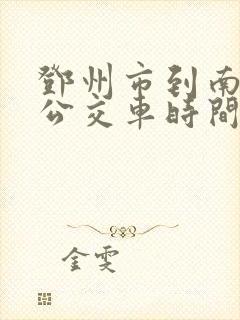 鄧州市到南
公交車時間
金雯